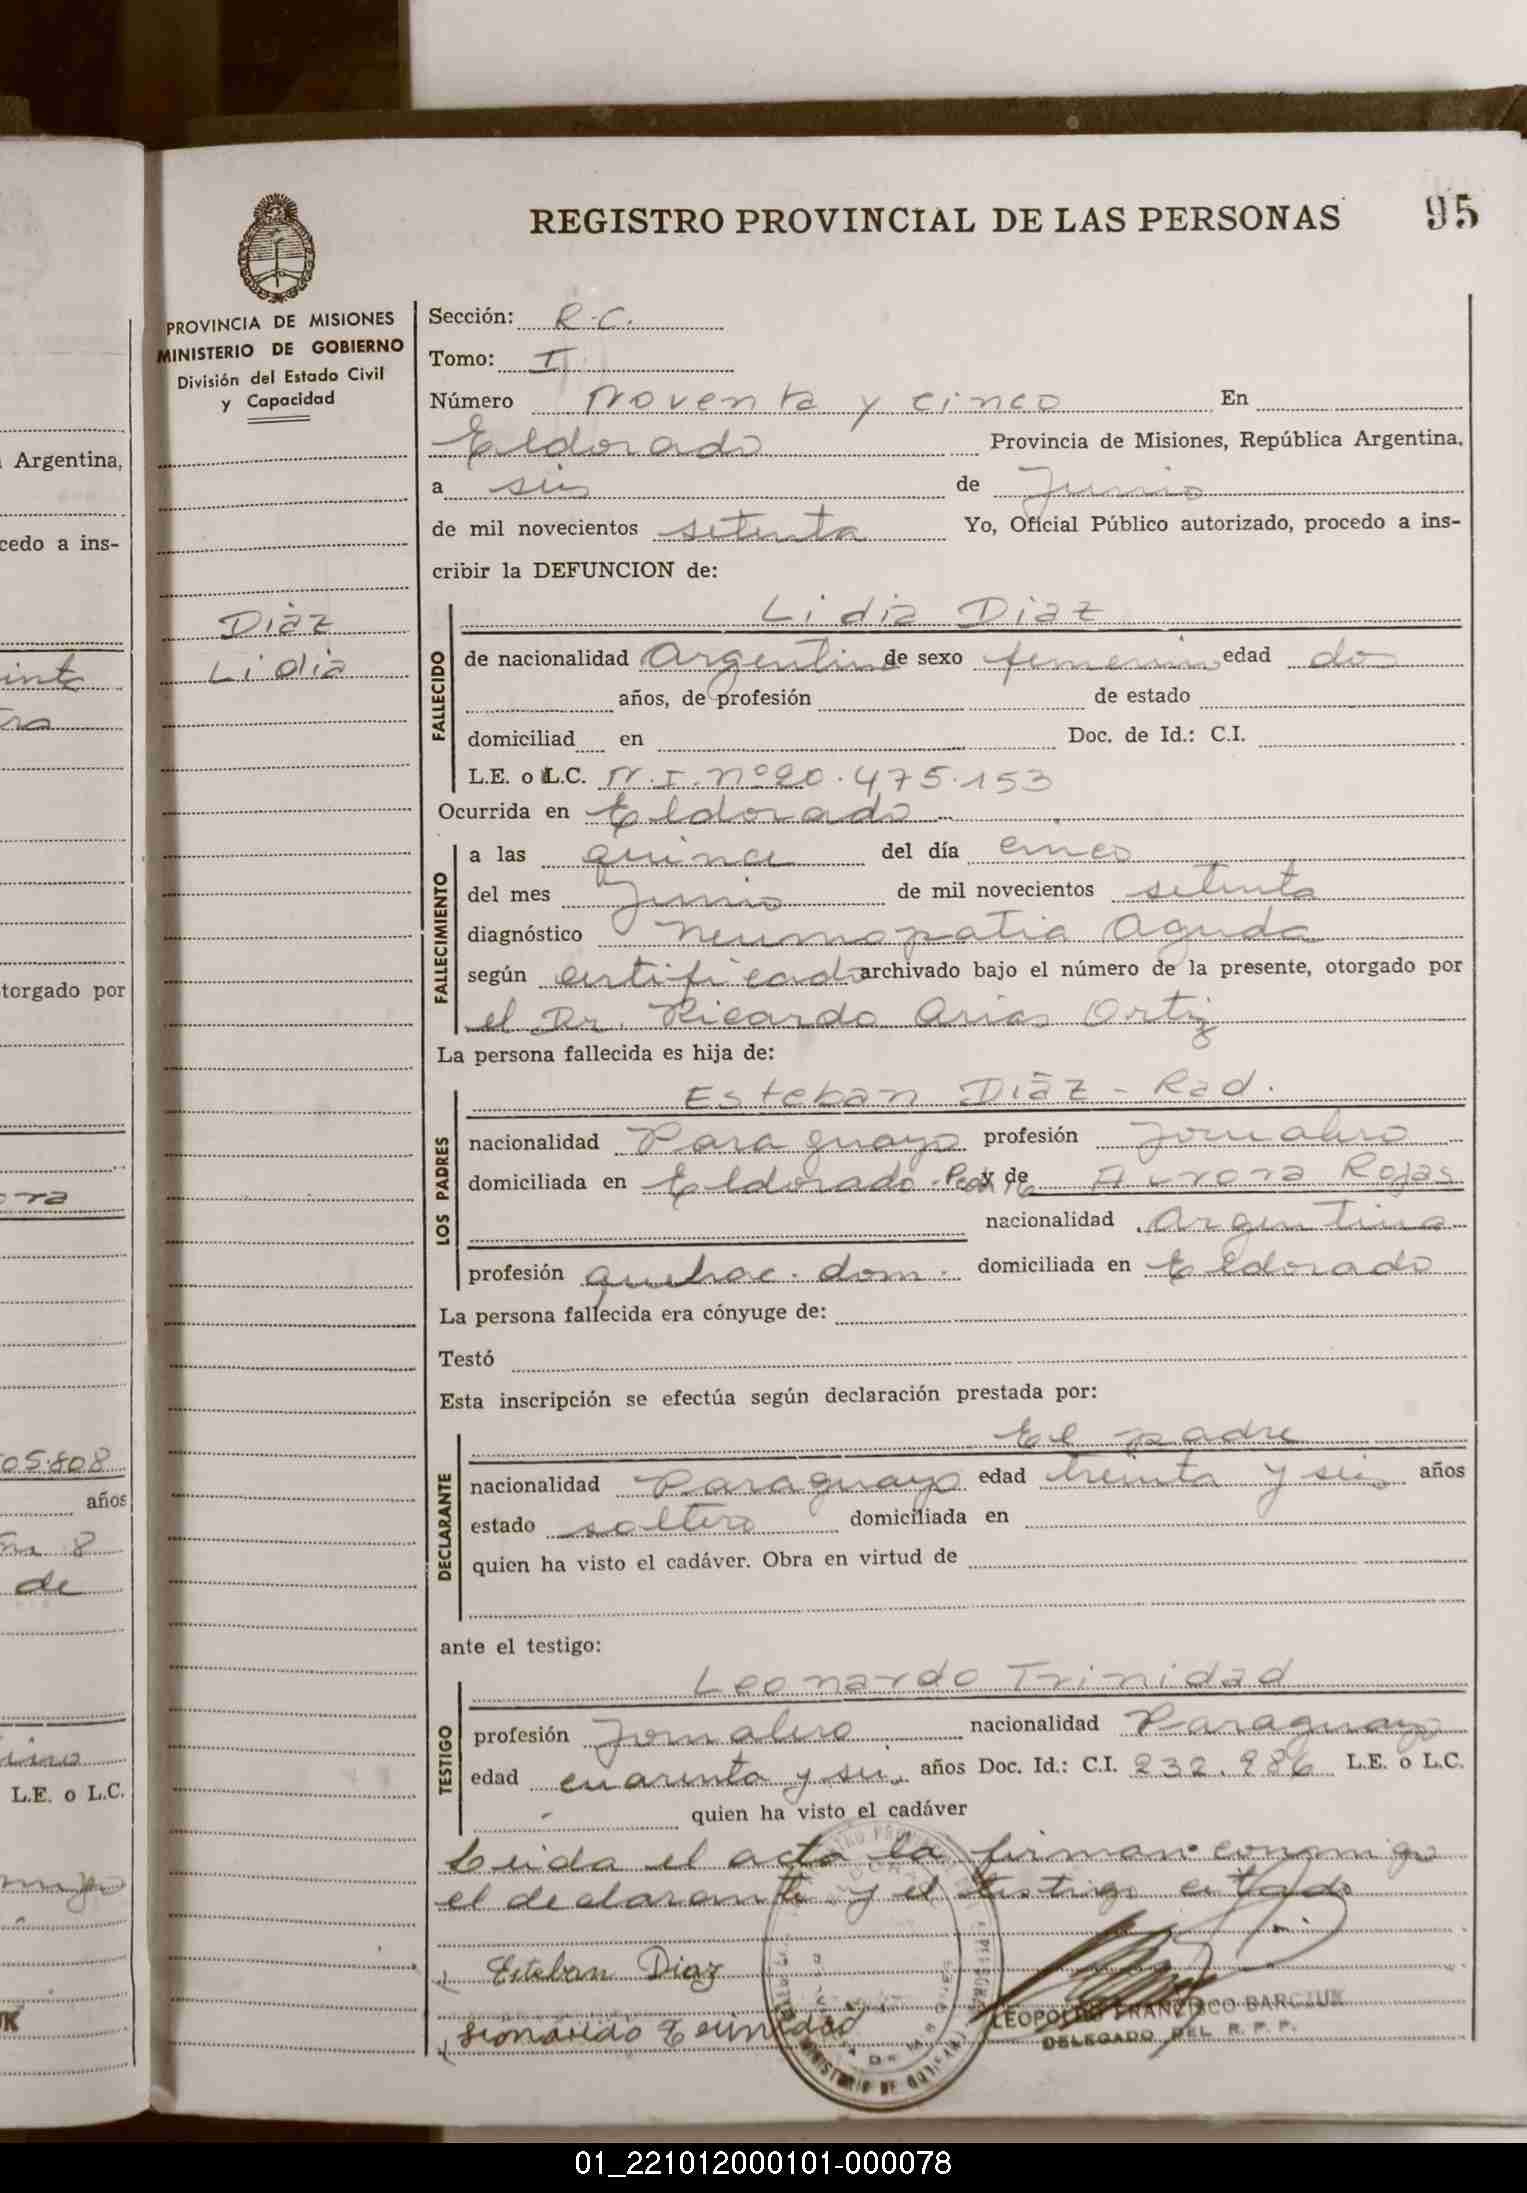 REGISTRO PROVINCIAL DE LAS PERSONAS 95
PROVINCIA DE MISIONES
MINISTERIO DE GOBIERNO
División del Estado Civil
y Capacidad
Diàz
Lidia
Sección: R.C.
Tomo: I
Número Noventa y cinco En
Eldorado Provincia de Misiones, República Argentina,
a seis de Junio
de mil novecientos setenta Yo, Oficial Público autorizado, procedo a ins-
cribir la DEFUNCION de:
FALLECIDO
Lidia Diaz
de nacionalidad Argentina de sexo femenino edad dos
años, de profesión de estado
domiciliad en Doc. de Id.: C.I.
L.E. o L.C. N.I. nº 20.475.153
Ocurrida en Eldorado
FALLECIMIENTO
a las quince del día cinco
del mes Junio de mil novecientos setenta
diagnóstico Neumopatia Aguda
según certificado archivado bajo el número de la presente, otorgado por
el Dr. Ricardo Arias Ortiz
La persona fallecida es hija de:
LOS PADRES
Esteban Diàz - Rad.
nacionalidad Paraguayo profesión Jornalero
domiciliada en Eldorado y de Aurora Rojas
nacionalidad Argentina
profesión quehac. dom. domiciliada en Eldorado
La persona fallecida era cónyuge de:
Testó
Esta inscripción se efectúa según declaración prestada por:
DECLARANTE
El padre
nacionalidad Paraguayo edad treinta y seis años
estado soltero domiciliada en
quien ha visto el cadáver. Obra en virtud de
ante el testigo:
TESTIGO
Leonardo Trinidad
profesión Jornalero nacionalidad Paraguayo
edad cuarenta y seis años Doc. Id.: C.I. 232.986 L.E. o L.C.
quien ha visto el cadáver
Leida el acta la firman conmigo
el declarante y el testigo citado
Esteban Diaz
LEOPOLDO FRANCISCO BARCZUK
DELEGADO DEL R.P.P.
Argentina,
cedo a ins-
otorgado por
05.808
años
de
L.E. o L.C.
01_221012000101-000078